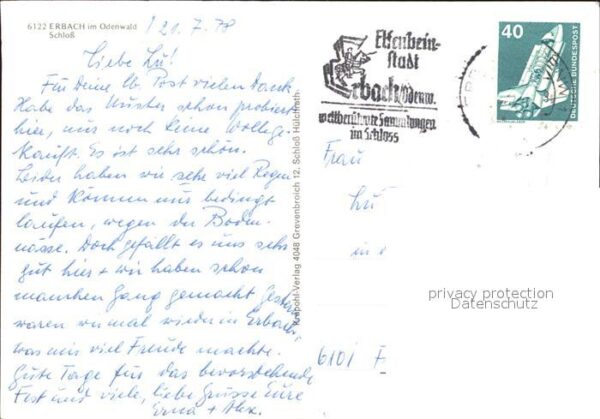 6122 ERBACH im Odenwald
Schloß
21.7.78
Liebe Lu!
Für Deine lb. Post vielen Dank.
Habe das Muster schon probiert
hier, nur noch keine Wolle ge-
kauft. Es ist sehr schön.
Leider haben wir sehr viel Regen
und können nur bedingt
laufen, wegen der Boden-
nässe. Doch gefällt es uns sehr
gut hier + wir haben schon
manchen Gang gemacht. Gestern
waren wir mal wieder in Erbach,
was mir viel Freude machte.
Gute Tage für das bevorstehende
Fest und viele, liebe Grüsse Eure
Erna + Alex.
Krapohl-Verlag 4048 Grevenbroich 12, Schloß Hülchrath
Elfenbein-
stadt
Erbach/Odenw.
weltberühmte Sammlungen
im Schloss
40
DEUTSCHE BUNDESPOST
Frau
Lu
in
6101 F
privacy protection
Datenschutz